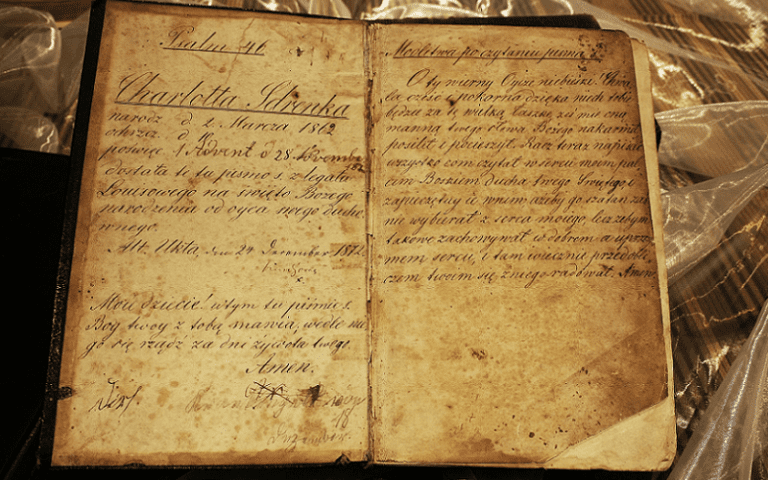 Psalm 46
Charlotta Sdrenka
narodz. d. 2 Marza, 1862
ochrzc. d.
poświęc. 1 Advent d 28 November
dostała te tu pismo s. z legatu
Louisowego na święto Bożego
narodzenia od oyca nőego ducho
wnego.
Alt. Ukta, den 24 December 1872
Moie dziecie! wtym tu piśmie s.
Bog twoy z tobą mawia, wedle nie
go się rządź za dni żywota twego
Amen.
Dezember
Modlitwa po czytaniu pisma s.
O ty wierny Oycze niebieski! Chwa
ła, cześć i pokorna dzięka niech tobi
będzie za tę wielką łaskę, żeś mie oną
manną twego słowa Bożego nakarmił
posilił i pocieszył. Racz teraz napisać
wszystko com czytał w sercu moiem pal
cem Boskiem ducha twego Świętego, i
zapieczętuy ie wniem ażeby go szatan zas
nie wybierał z serca moiego, lecz żebym
takowe zachowywał w dobrem a uprzey
mem sercu, i tam wiecznie przed obli
czem twoim się z niego radował. Amen